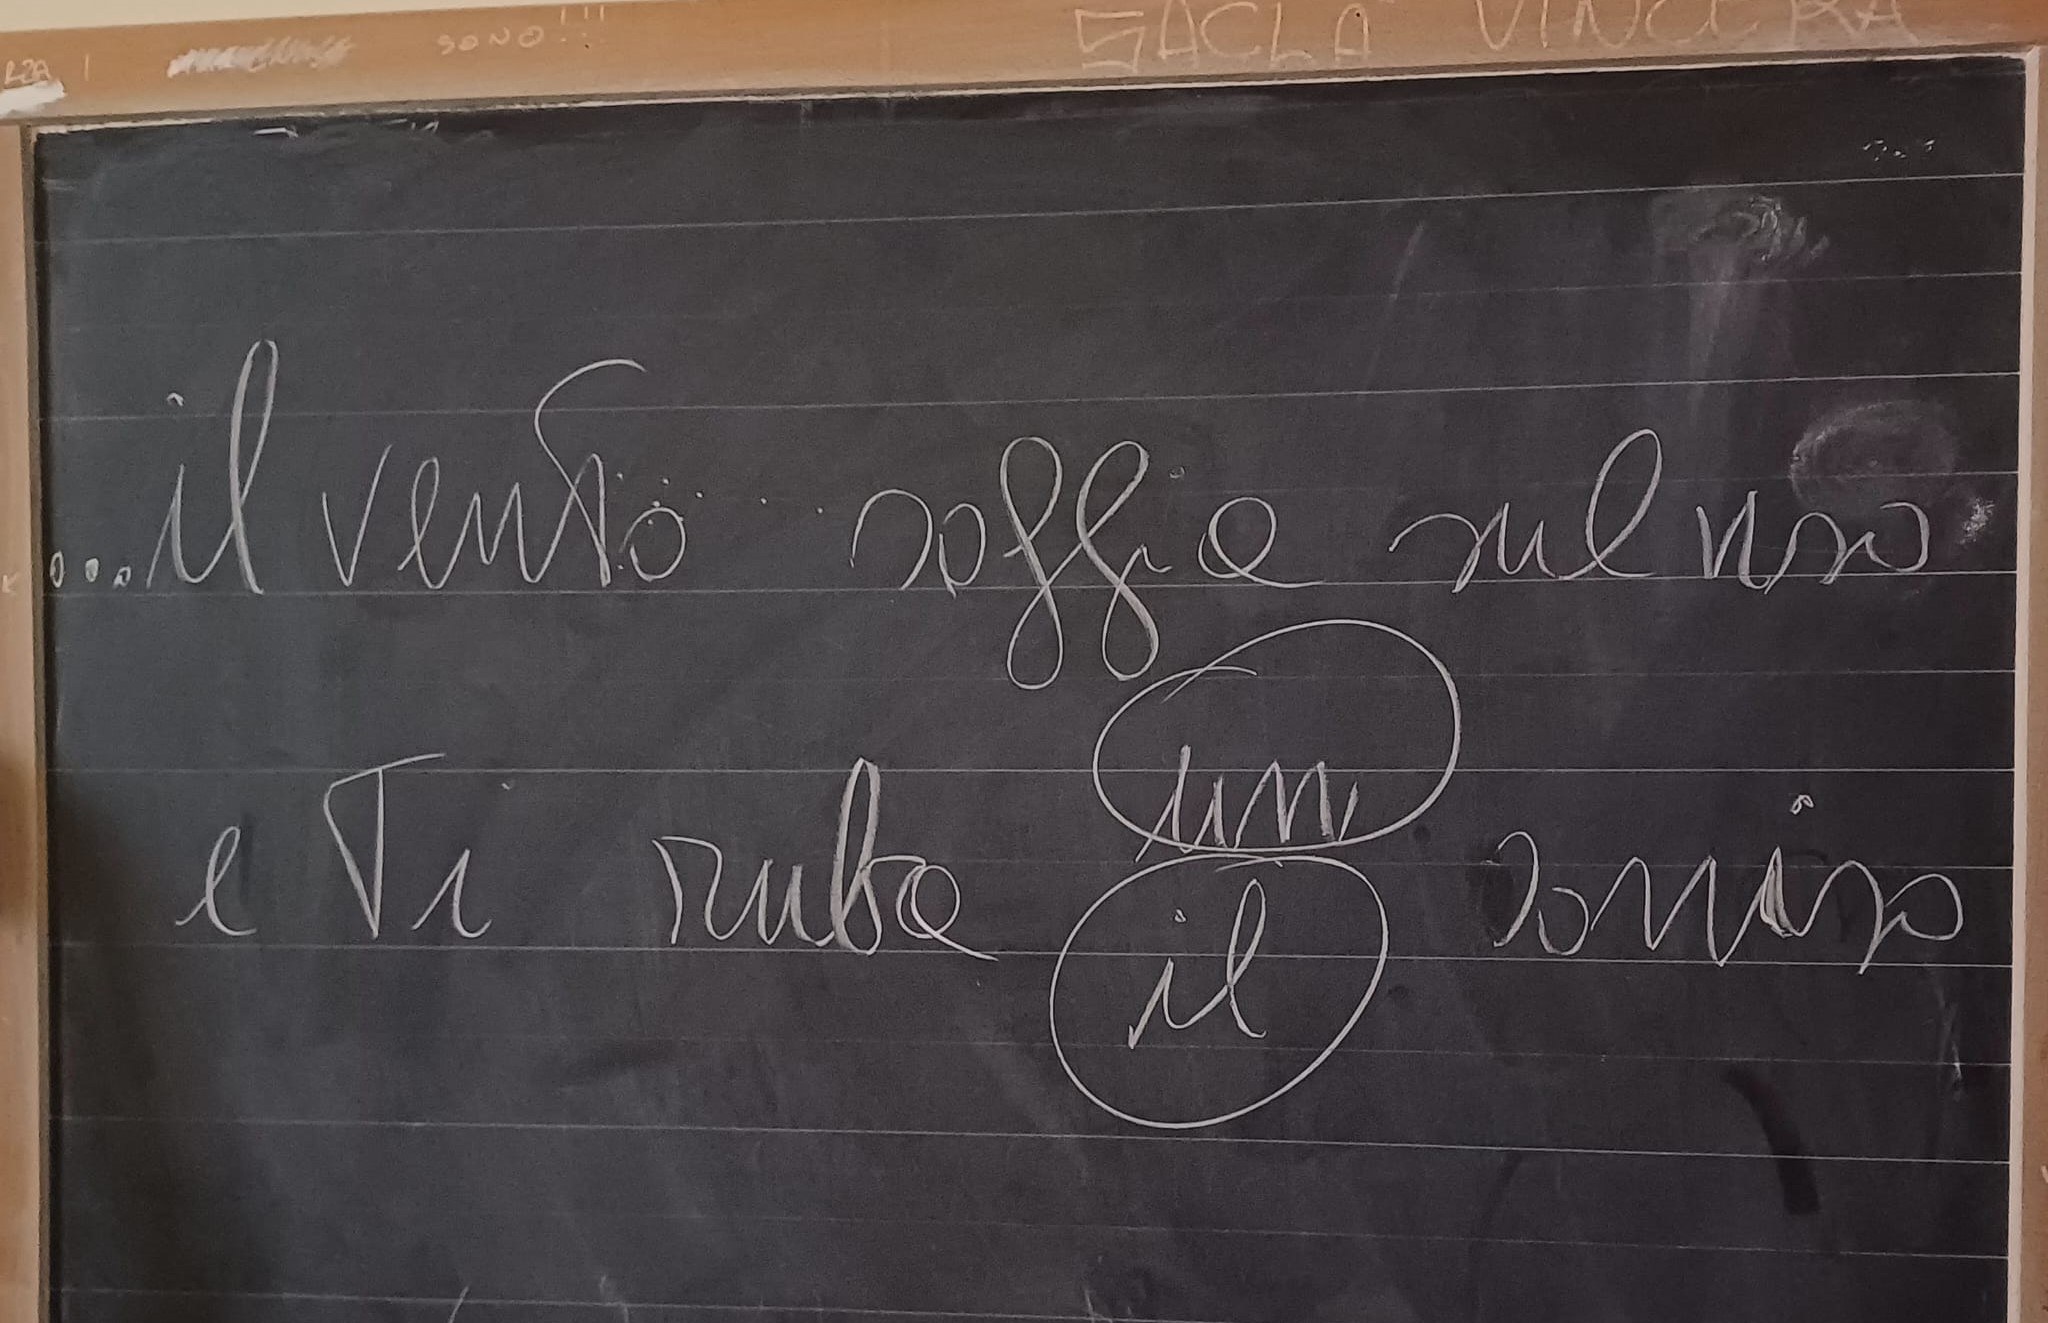 SONO!!!
SACLA' VINCERA
...il vento soffia sul viso
e Ti ruba un
il sorriso